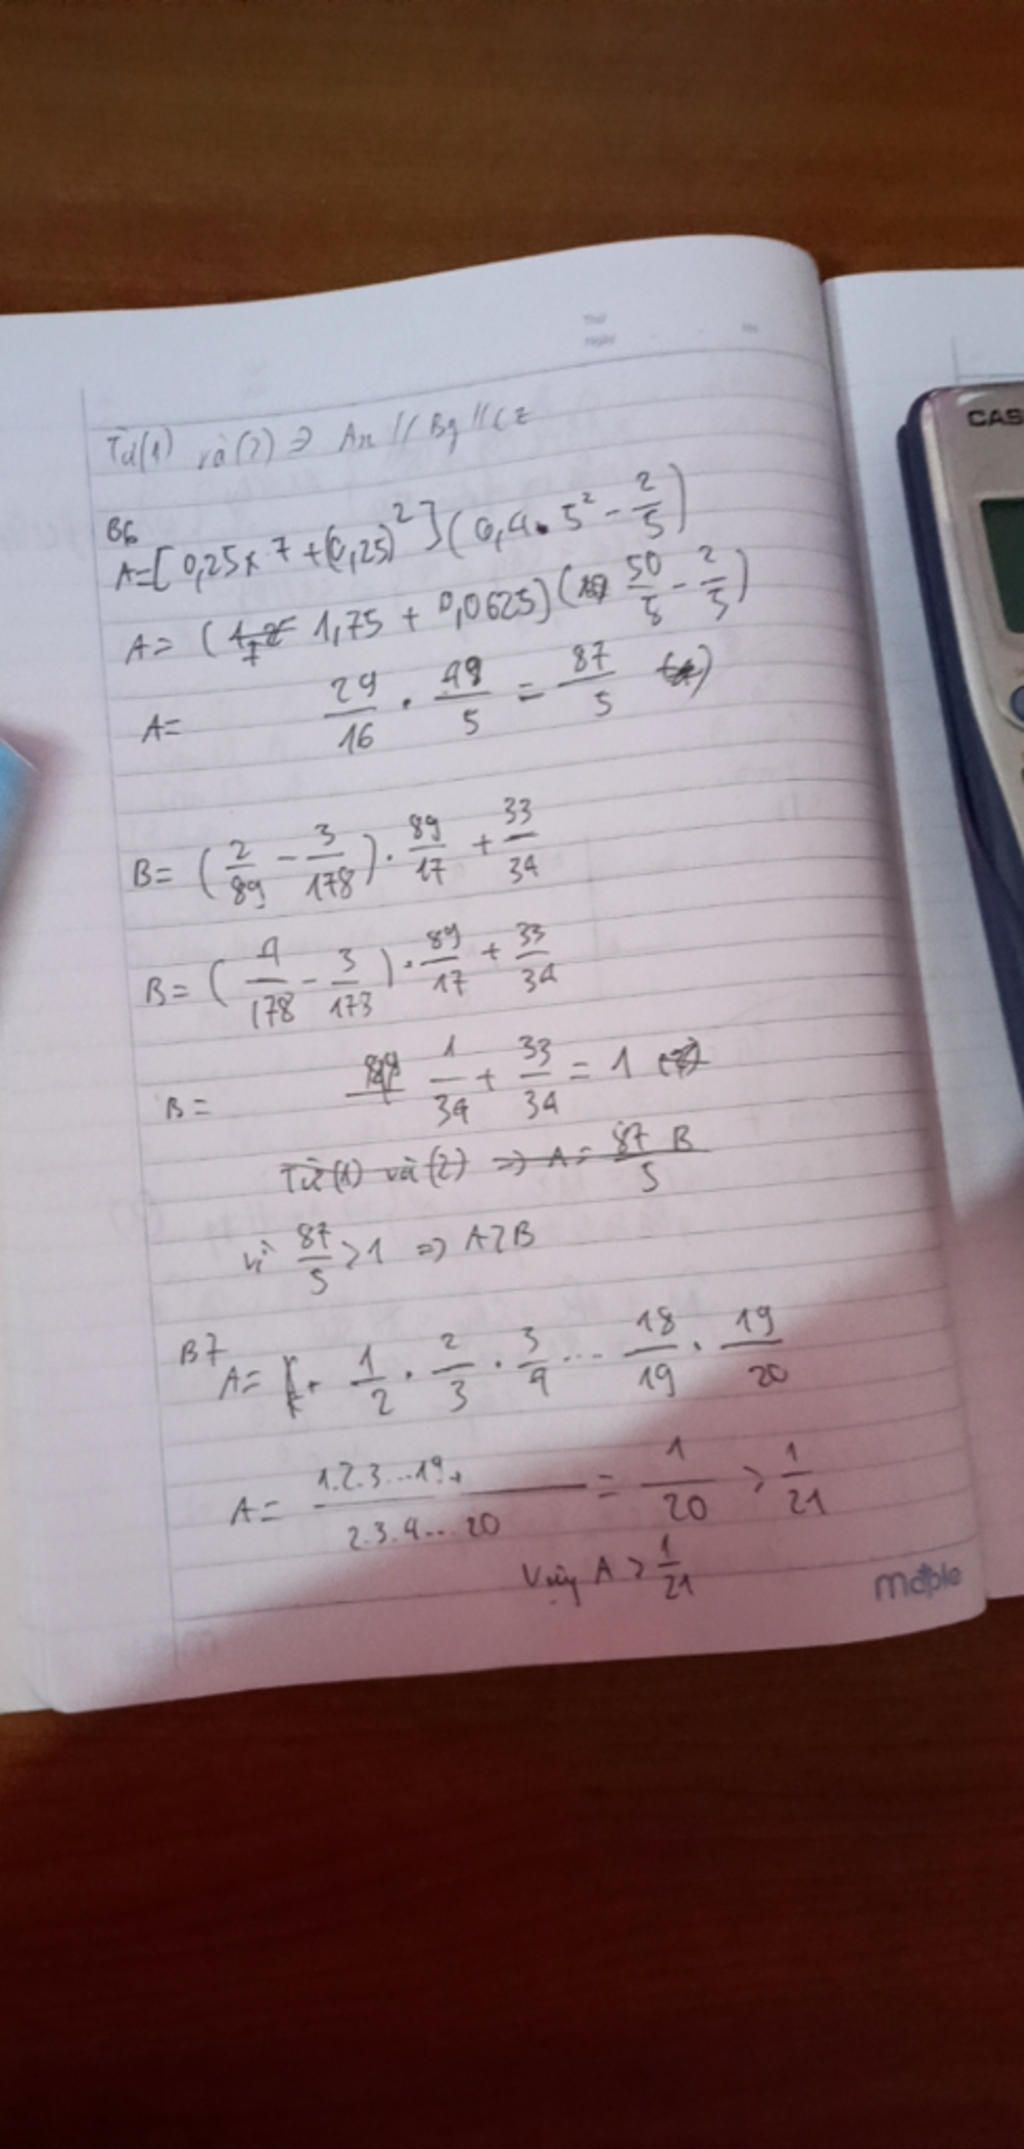 Thứ
ngày
No
Từ(1) và(2) => Ax // By // Cz
CAS
B6
A=[0,25x7+(0,25)²](0,4.5²-2/5)
A= ( 1,75 + 0,0625)( 50/5 - 2/5)
A= 29/16 . 48/5 = 87/5
B= (2/89 - 3/178) . 89/17 + 33/34
B= (4/178 - 3/178) . 89/17 + 33/34
B= 1/34 + 33/34 = 1
Từ(1) và (2) => A = 87/5 B
Vì 87/5 >1 => A>B
B7
A= 1/2 . 2/3 . 3/4 ... 18/19 . 19/20
A= 1.2.3...19/2.3.4...20 = 1/20 > 1/21
Vậy A > 1/21
maple